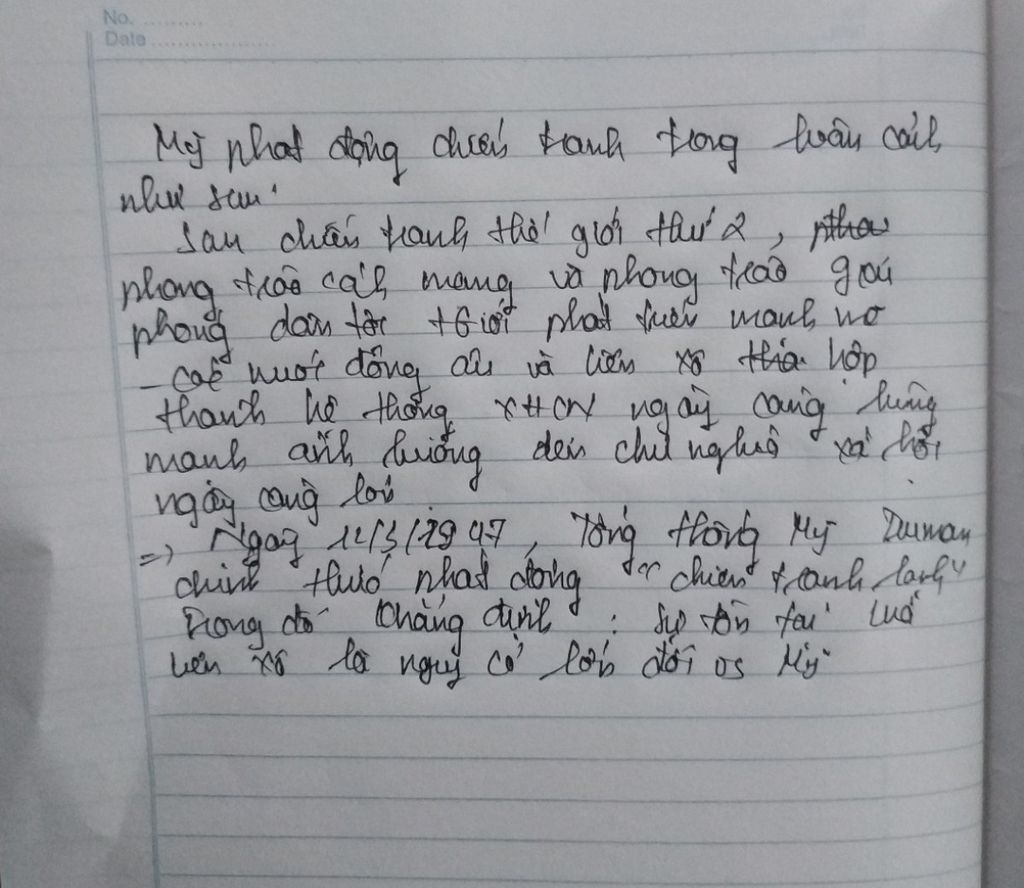 No. ..........
Date ....................
Mỹ phat động chiến tranh trong hoàn cảnh
như sau:
Sau chiến tranh thế giới thứ 2,
phong trào cách mang và phong trào giải
phong dan tộc tGiới phat triển manh mẽ
- Các nước đông âu và liên xô hợp
thanh hê thống XHCN ngày cang hùng
manh ảnh hưởng đến chủ nghĩa xã hội
ngày cang lớn
=> Ngay 12/3/1947, Tổng thống Mỹ Truman
chinh thức phat động "chiến tranh lanh"
Trong đó khẳng định : Sự tồn tại của
liên xô là nguy cơ lớn đối vs Mỹ